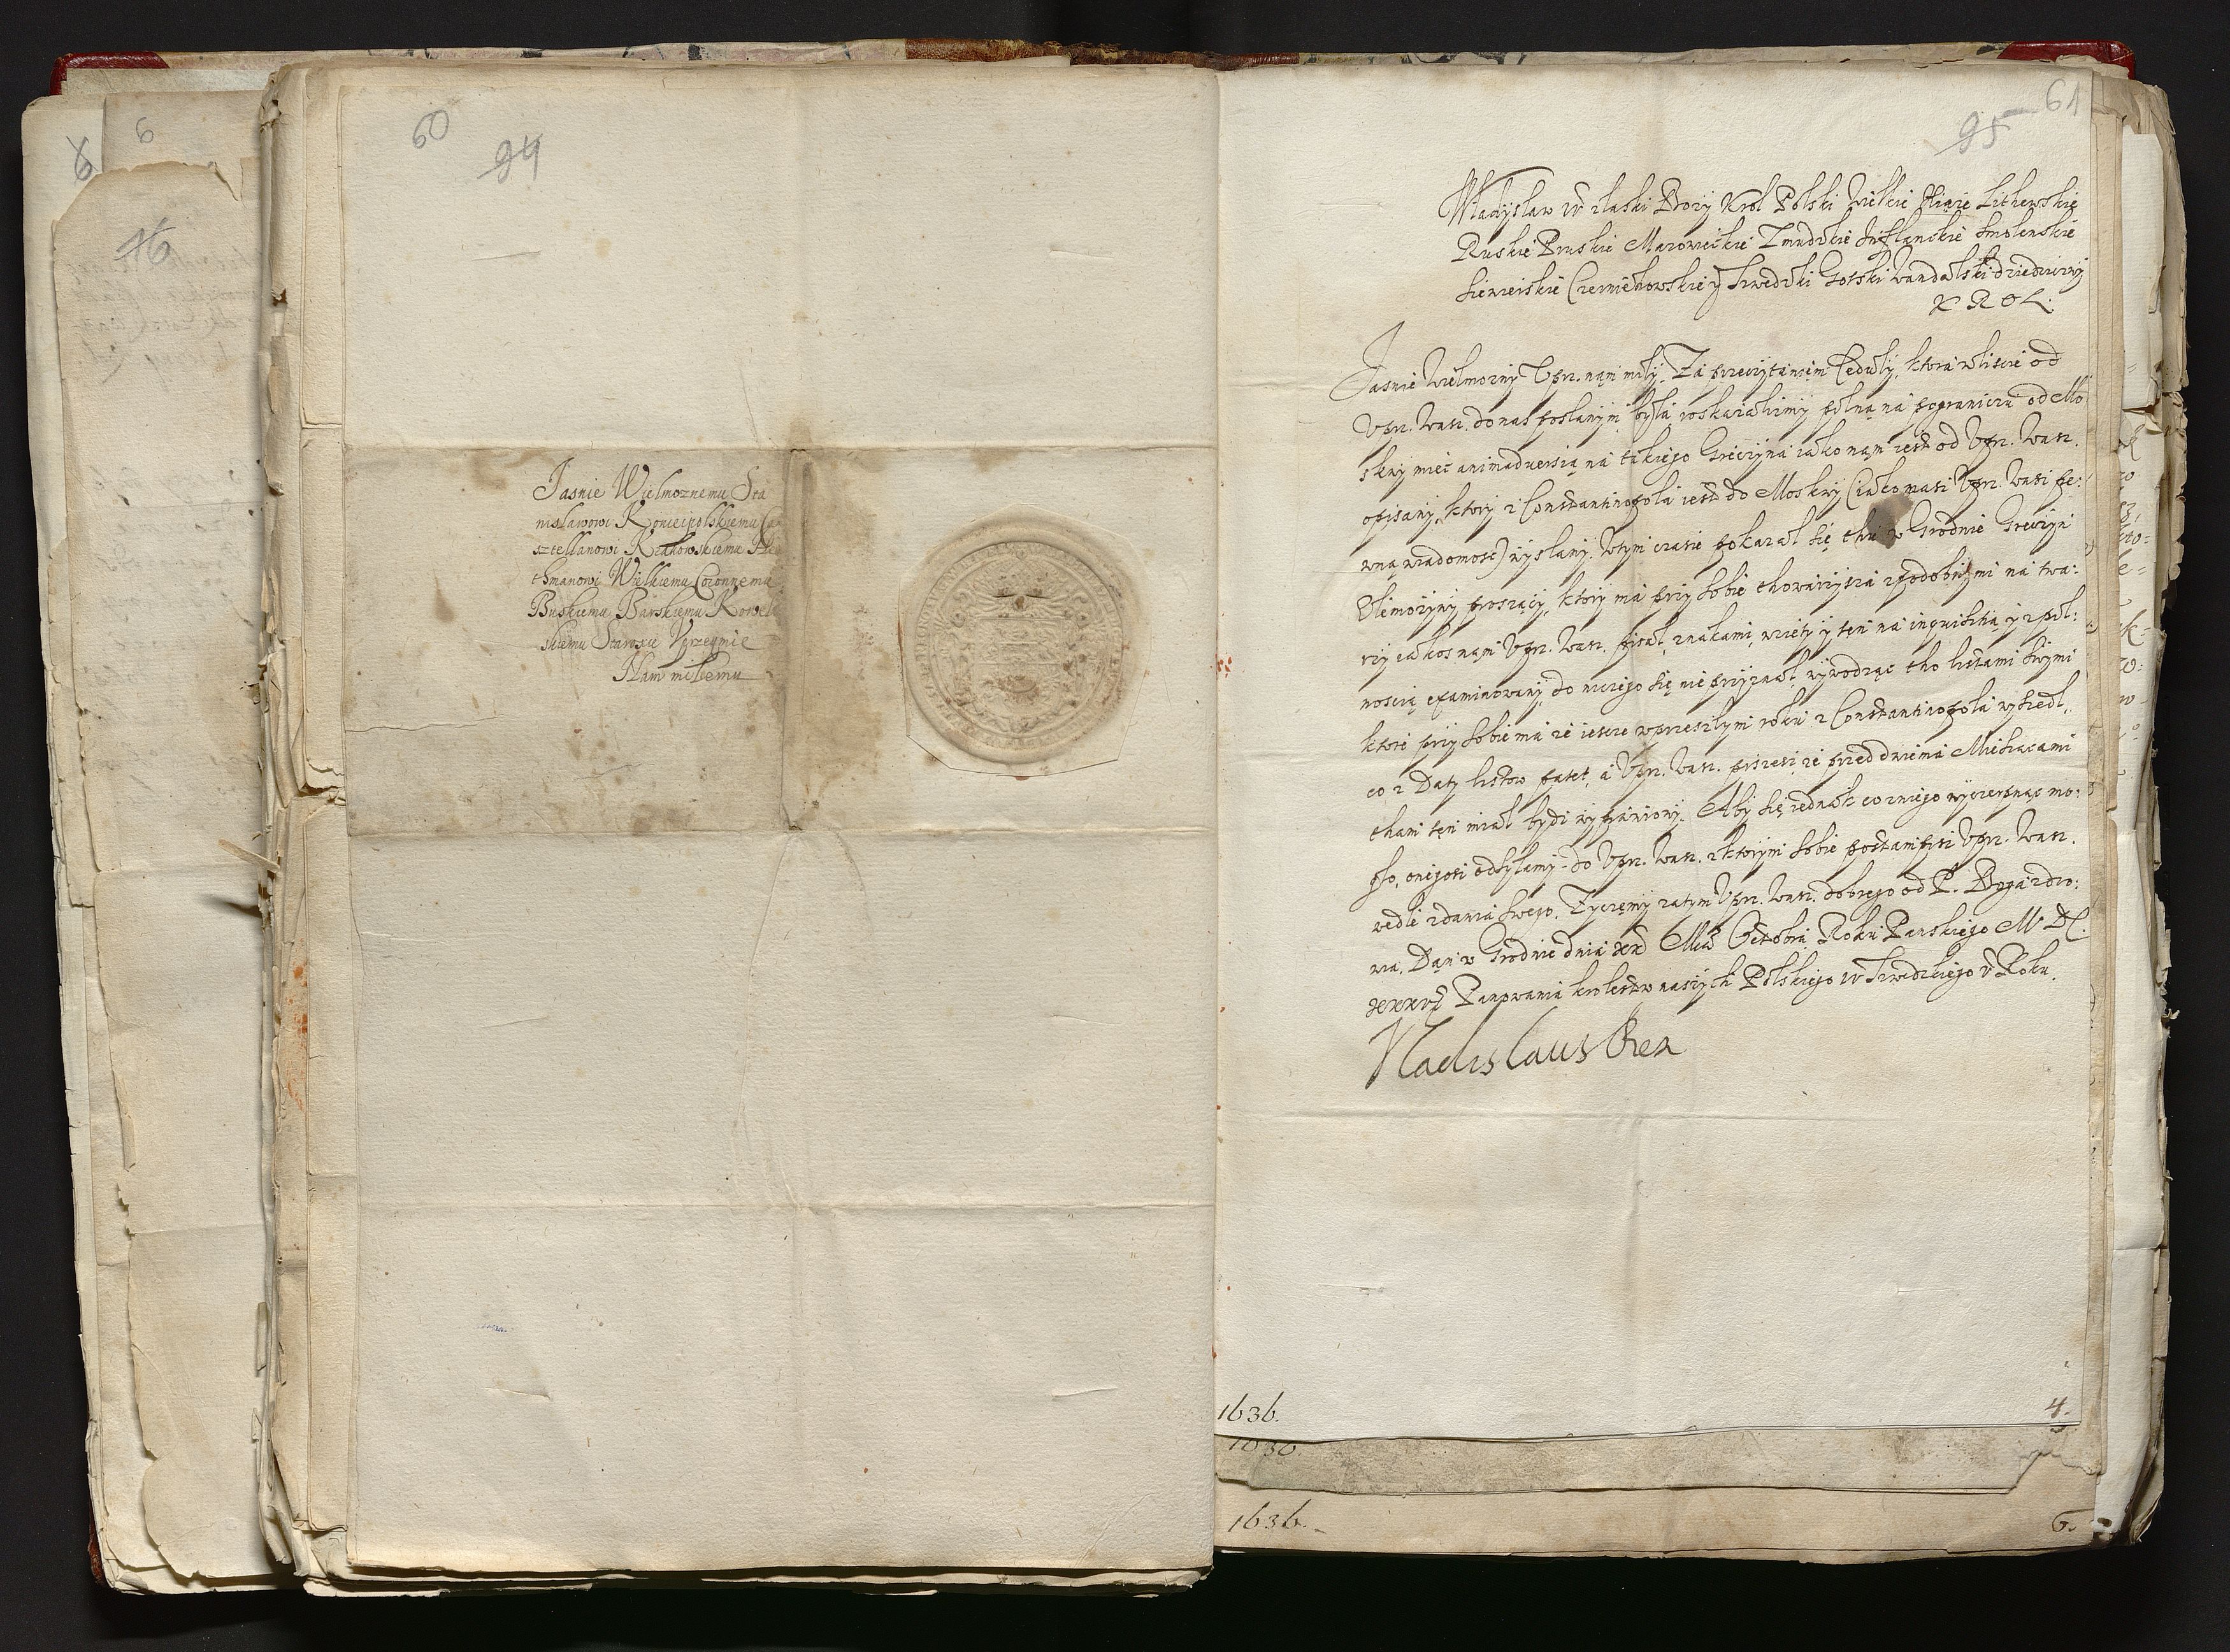 60
94
Jasnie Wielmoznemu Sta
nisławowi Koniecpolskiemu Ca
sztellanowi Krakowskiemu He
thmanowi Wielkiemu Coronnemu
Buskiemu Barskiemu Kowel
skiemu Staroscie Vprzeymie
Nam miłemu
61
95
Władysław IV z łaski Bozy Krol Polski Wielkie Xiąze Lithewskie
Ruskie Pruskie Mazowieckie Zmudzkie Inflanckie Smolenskie
Siewierskie Czerniechowskie y Szwedzki Gotski Wandalski dziedziczny
KROL.
Jasnie Wielmozny Vprz. nąm miły. Za przeczytaniem Ceduły, ktora w liscie od
Vprz. Wasz. do nas posłanym była roskazalismy pilną na pograniczu od Mo
skwy miec animaduersią na takiego Greczyna iako nąm iest od Vprz. Wasz.
opisany, ktory z Constantinopola iest do Moskwy (iako masz Vprz. Wasz pe:
wną wiadomosc) wysłany. W tym czasie pokazał się thu w Grodnie Greczyn
Jełmozyny proszący, ktory ma przy sobie thowarzysza z podobnymi na twa:
rzy iakos nąm Vprz. Wasz. pisał, znakami, wzięty y ten na inquisitią y z pil:
noscią examinowany, do niczego się nie przyznał, wywodząc tho listami swymi
ktore przy sobie ma ze ieszcze w przeszłym roku z Constantinopola wyszedł,
co z Daty listow patet, a Vprz. Wasz. piszesz ze przed dwiema Miesiącami
tham ten miał bydz wyprawiony. Aby się iednak co z niego wyczerpnąc mo:
gło, onegosz odsyłamy do Vprz. Wasz. z ktorym sobie postąmpisz Vprz. Wasz.
wedle zdania swego. Zyczęmy zatym Vprz. Wasz. dobrego od P. Boga zdro:
wia. Dąn w Grodnie dnia Mca Octobra Roku Panskiego M DC.
XXXVI Panowania krolestw naszych Polskiego IV Szwedzkiego V Roku.
Vladislaus Rex
1636.
4.
1636
1636.
6.